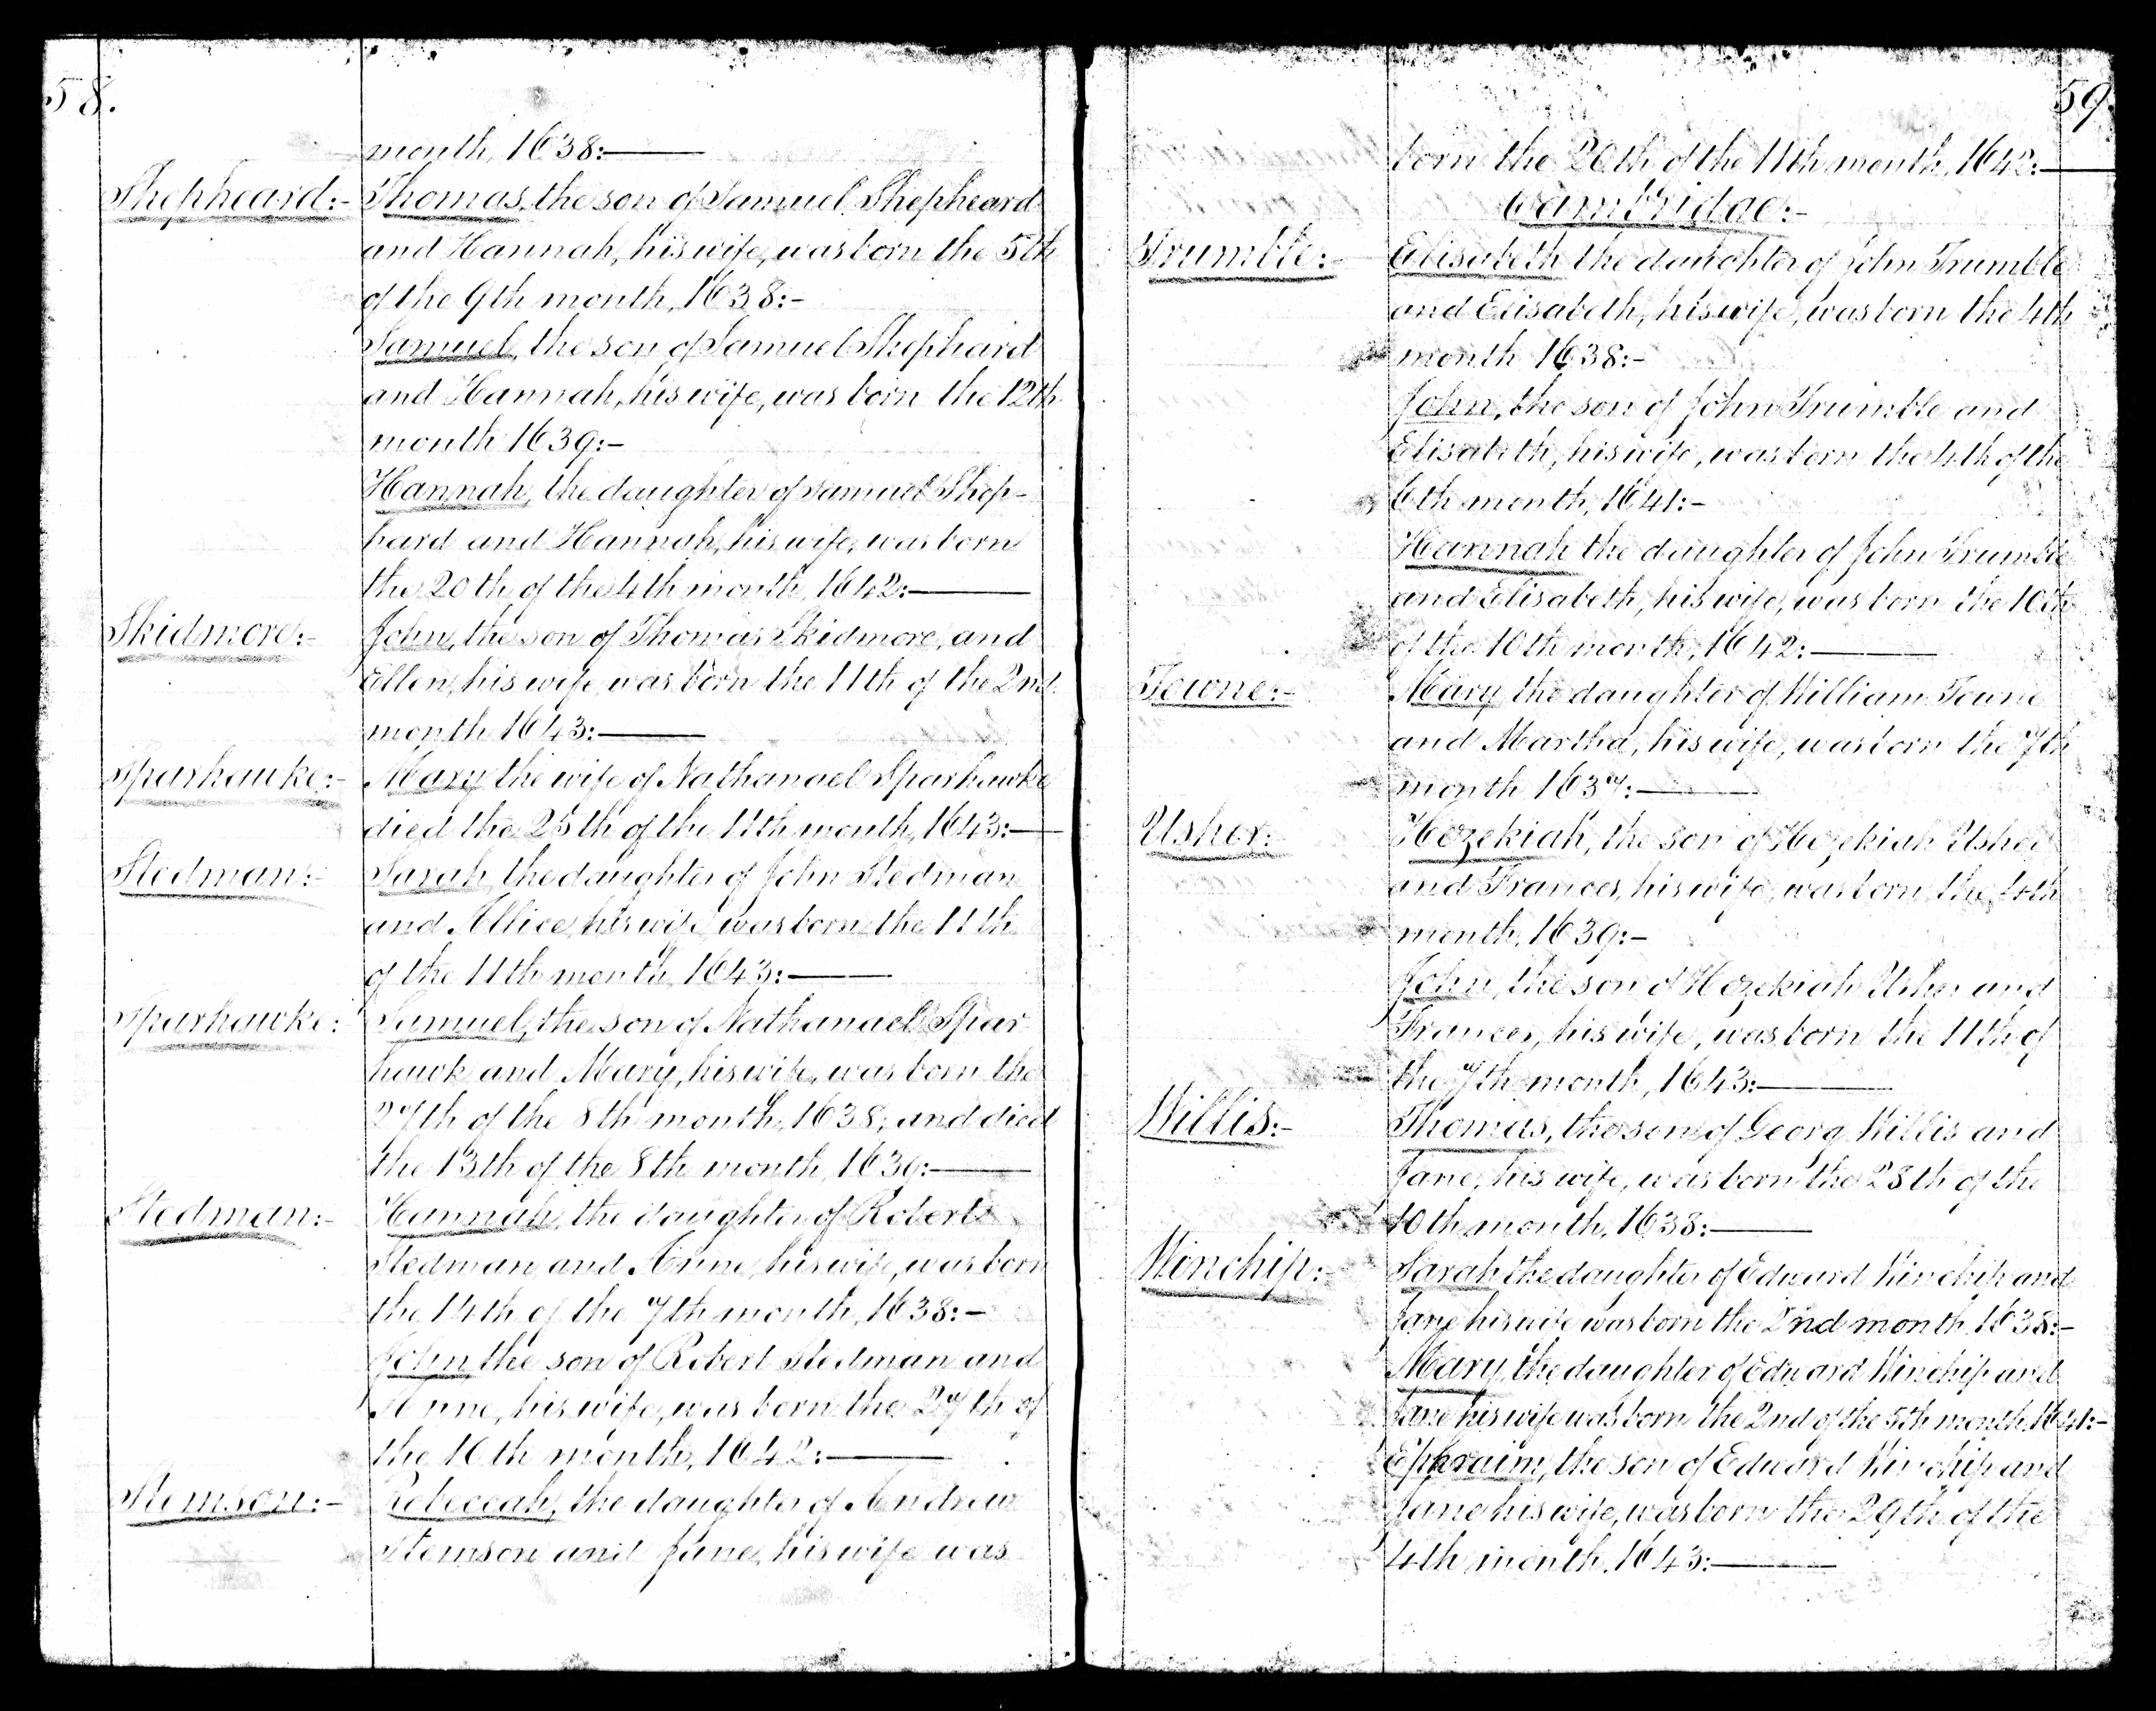 58.
month, 1638:—
Shepheard:- Thomas, the son of Samuel Shepheard
and Hannah, his wife, was born the 5th
of the 9th month, 1638:-
Samuel, the son of Samuel Shephard
and Hannah, his wife, was born the 12th
month 1639:-
Hannah, the daughter of Samuel Shep-
hard and Hannah, his wife, was born
the 20th of the 4th month, 1642:—
Skidmore:- John, the son of Thomas Skidmore, and
Ellen, his wife, was born the 11th of the 2nd
month 1643:—
Sparhauke:- Mary the wife of Nathanael Sparhawke
died the 25th of the 11th month, 1643:—
Stedman:- Sarah, the daughter of John Stedman
and Allice, his wife, was born the 11th
of the 11th month, 1643:—
Sparhawke: Samuel, the son of Nathanael Spar-
hawk and Mary, his wife, was born the
27th of the 8th month, 1638; and died
the 13th of the 8th month, 1639:—
Stedman:- Hannah, the daughter of Robert
Stedman and Anne, his wife, was born
the 14th of the 7th month, 1638:-
John the son of Robert Stedman and
Anne, his wife, was born the 27th of
the 10th month, 1642:—
Stemson:- Rebeccah, the daughter of Andrew
Stemson and Jane, his wife was
59.
born the 20th of the 11th month, 1642:—
Cambridge:-
Trumble:- Elisabeth the daughter of John Trumble
and Elisabeth, his wife, was born the 4th
month 1638:-
John, the son of John Trumble and
Elisabeth, his wife, was born the 4th of the
6th month, 1641:-
Hannah the daughter of John Trumble
and Elisabeth, his wife, was born the 10th
of the 10th month, 1642:—
Towne:- Mary, the daughter of William Towne
and Martha, his wife, was born the 7th
month 1637:—
Usher: Hezekiah, the son of Hezekiah Usher
and Frances, his wife, was born the 4th
month, 1639:-
John, the son of Hezekiah Usher and
Frances, his wife, was born the 11th of
the 7th month, 1643:—
Willis:- Thomas, the son of Georg Willis and
Jane, his wife, was born the 28th of the
10th month, 1638:—
Winchip: Sarah the daughter of Edward Winchip and
Jane his wife was born the 2nd month 1638:-
Mary, the daughter of Edward Winchip and
Jane his wife was born the 2nd of the 5th month, 1641:-
Ephraim, the son of Edward Winchip and
Jane his wife, was born the 29th of the
4th month, 1643:—